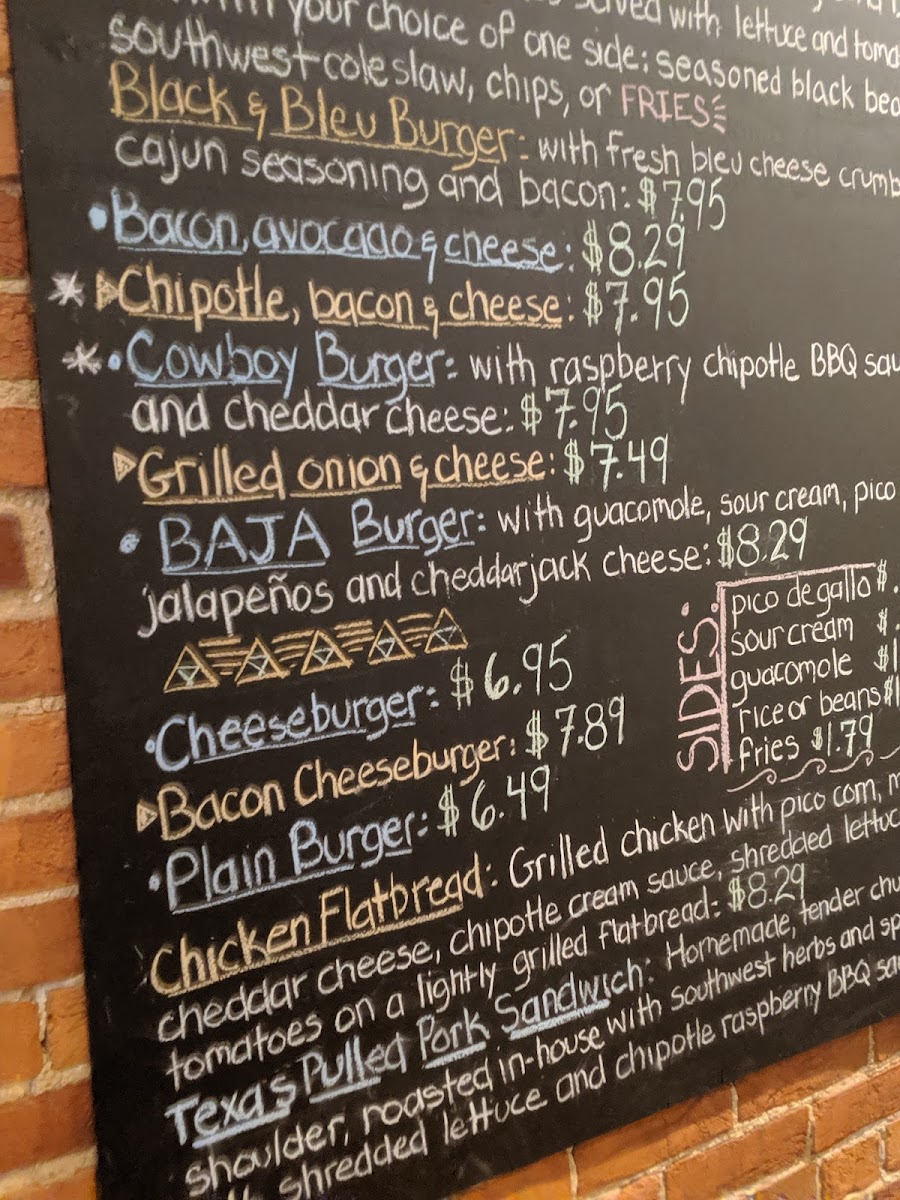 your choice of one side: seasoned black
served with lettuce and
southwest coleslaw, chips, or FRIES
Black & Bleu Burger: with fresh bleu cheese
cajun seasoning and bacon: $7.95
•Bacon, avocado & cheese: $8.29
* Chipotle, bacon & cheese: $7.95
* •Cowboy Burger: with raspberry chipotle BBQ
and cheddar cheese: $7.95
Grilled onion & cheese: $7.49
• BAJA Burger: with guacamole, sour cream, pico
jalapeños and cheddarjack cheese: $8.29
SIDES:
pico de gallo $.
sour cream $.
guacomole $1
rice or beans $1
fries $1.79
•Cheeseburger: $6.95
Bacon Cheeseburger: $7.89
•Plain Burger: $6.49
Chicken Flatbread: Grilled chicken with pico com,
cheddar cheese, chipotle cream sauce, shredded
tomatoes on a lightly grilled flatbread: $8.29
Texas Pulled Pork Sandwich: Homemade, tender
shoulder, roasted in-house with southwest herbs and
shredded lettuce and chipotle raspberry BBQ